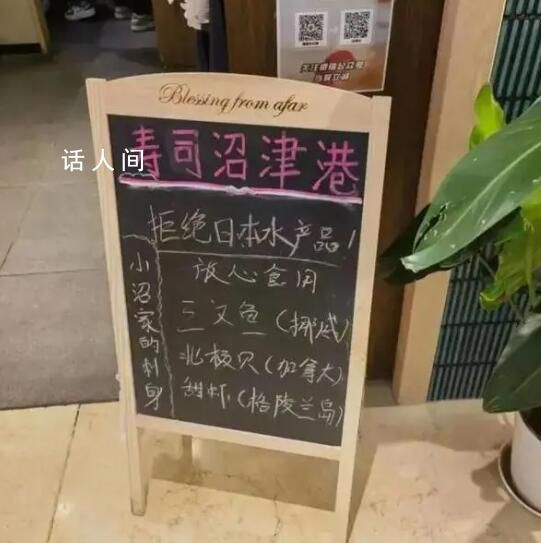 关注微信公众号
Blessing from afar
话人间
寿司沼津港
拒绝日本水产品!
放心食用
三文鱼(挪威)
北极贝(加拿大)
甜虾(格陵兰岛)
小沼家的刺身